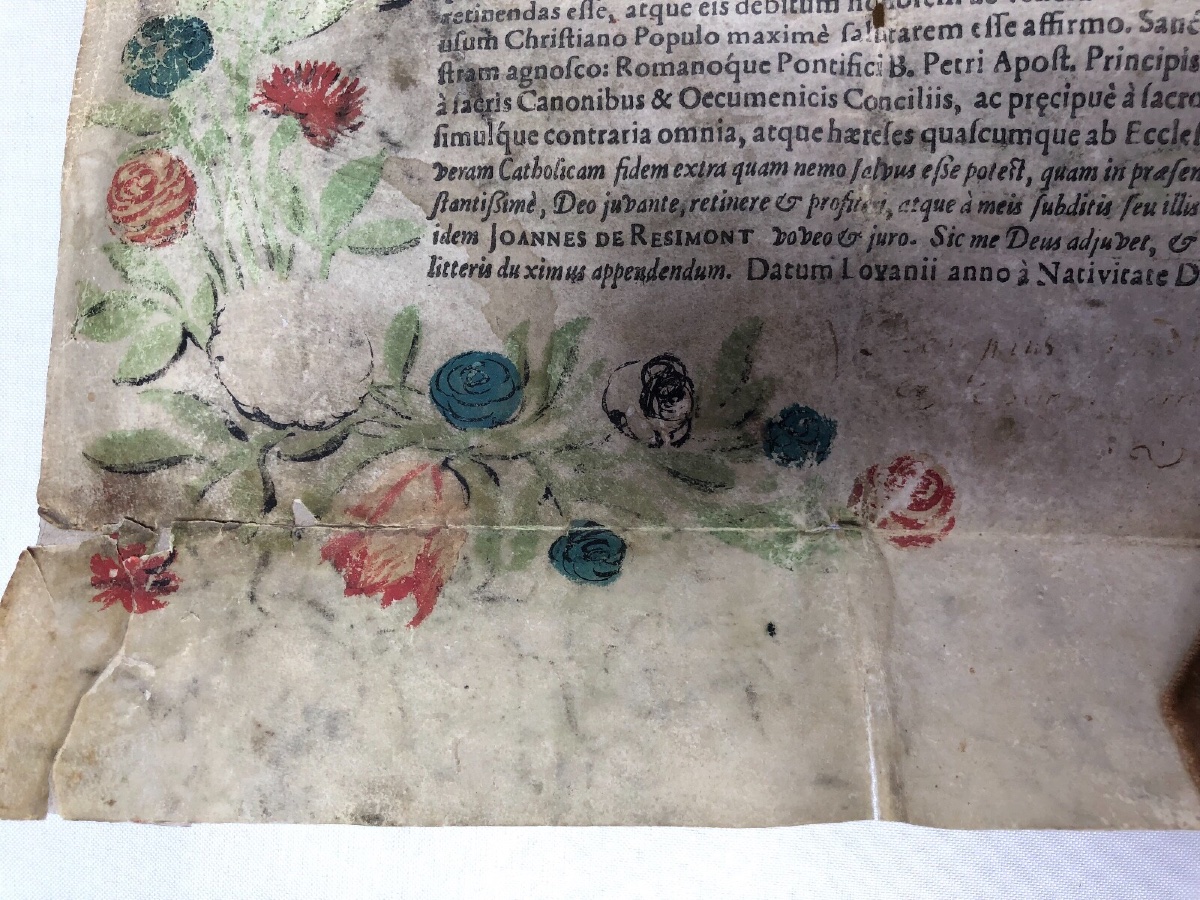 retinendas eſſe, atque eis debitum
uſum Chriſtiano Populo maximè ſalutarem eſſe affirmo. Sanc
ſtram agnoſco: Romanoq́ue Pontifici B. Petri Apoſt. Principis
à ſacris Canonibus & Oecumenicis Conciliis, ac pręcipuè à ſacro
ſimulq́ue contraria omnia, atque hæreſes quaſcumque ab Eccleſ
veram Catholicam fidem extra quam nemo ſalvus eſſe poteſt, quam in præſen
ſtantiſſimè, Deo juvante, retinere & profiteri, atque à meis ſubditis ſeu illus
idem JOANNES DE RESIMONT voveo & juro. Sic me Deus adjuvet, &
litteris duximus appendendum. Datum Lovanii anno à Nativitate D